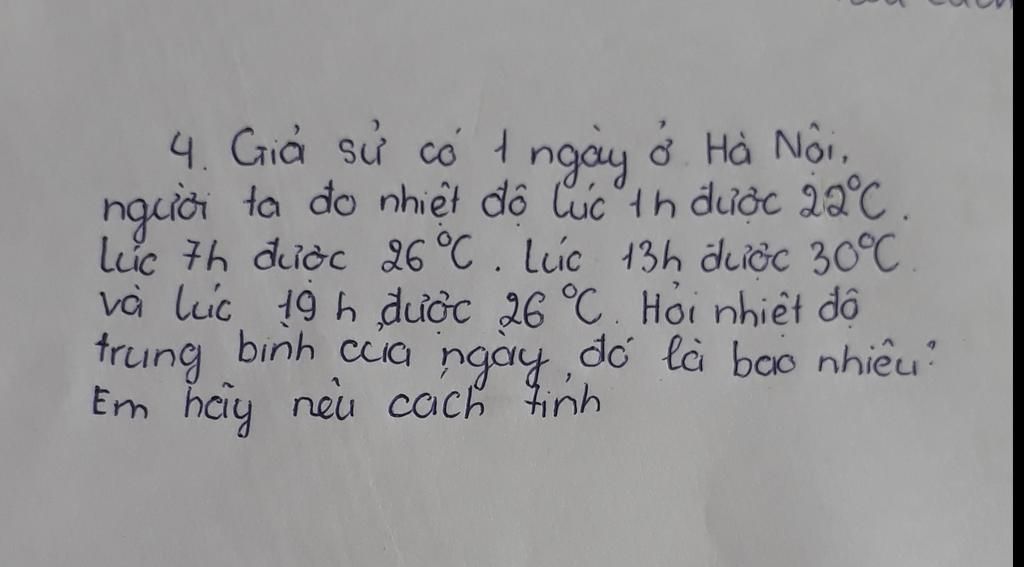 4. Giả sử có 1 ngày ở Hà Nội,
người ta đo nhiệt độ lúc 1h được 22°C.
lúc 7h được 26°C. lúc 13h được 30°C
và lúc 19h được 26°C. Hỏi nhiệt độ
trung bình của ngày đó là bao nhiêu?
Em hãy nêu cách tính